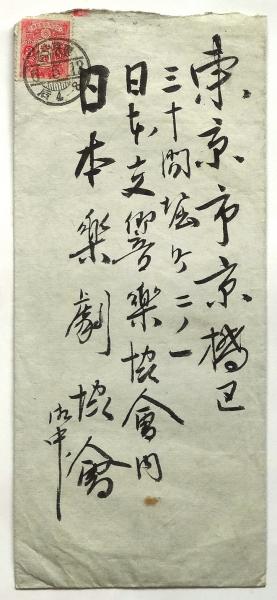 東京市京橋区
三十間堀町二ノ一
日本交響楽協会内
日本楽劇協會
御中